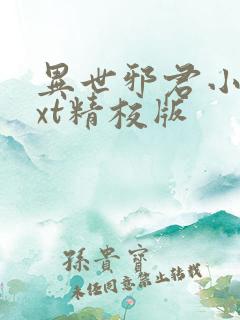 異世邪君小
xt精校版
孫貴寶
未經同意禁止轉載